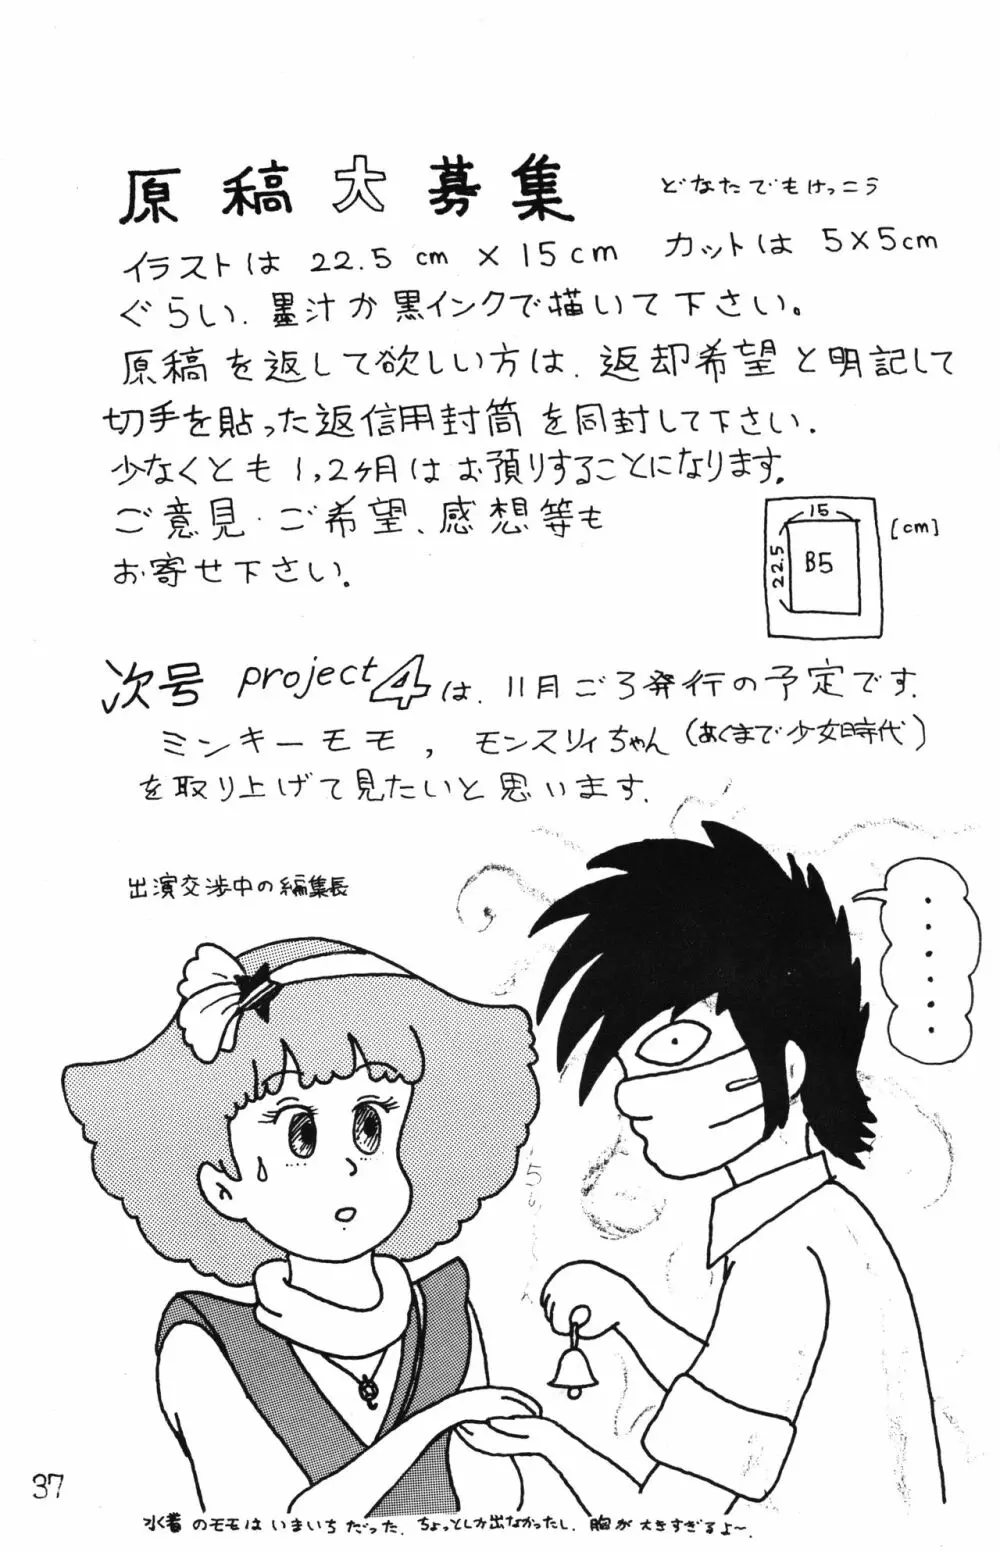 原稿大募集 どなたでもけっこう
イラストは 22.5cm×15cm カットは 5×5cm
ぐらい、墨汁か黒インクで描いて下さい。
原稿を返して欲しい方は、返却希望と明記して
切手を貼った返信用封筒を同封して下さい。
少なくとも1,2ヶ月はお預りすることになります。
ご意見・ご希望、感想等も
お寄せ下さい。
15
[cm]
22.5
B5
次号 project4は、11月ごろ発行の予定です。
ミンキーモモ, モンスリィちゃん(あくまで少女時代)
を取り上げて見たいと思います。
出演交渉中の編集長
・・・・・・
37
水着のモモはいまいちだった。ちょっとしか出なかったし、胸が大きすぎるよ〜。